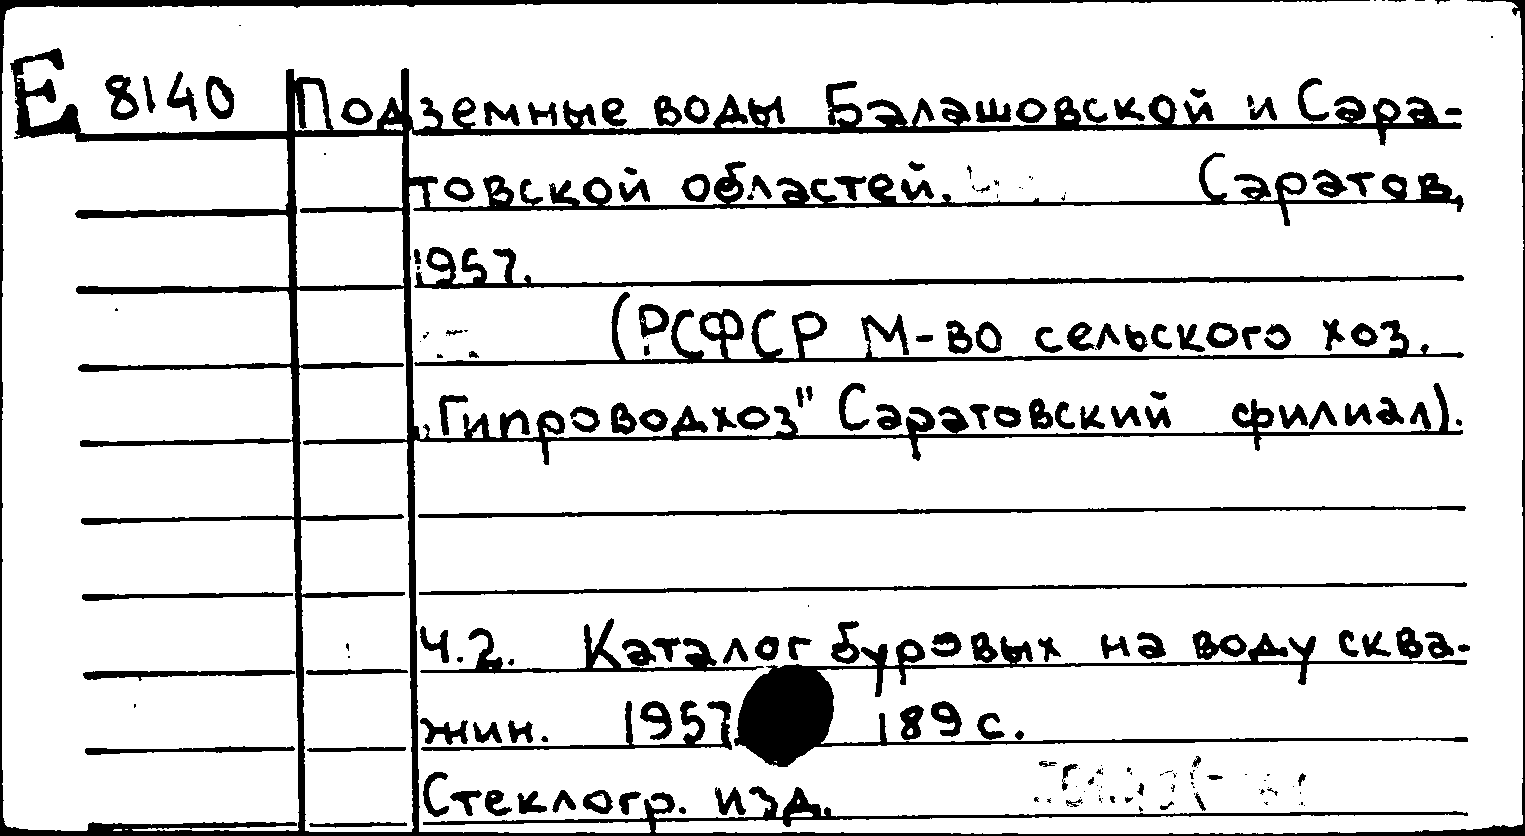 Е 8140 Подземные воды Балашовской и Сара-
товской областей. Саратов,
1957.
(РСФСР М-во сельского хоз.
„Гипроводхоз" Саратовский филиал).
Ч.2. Каталог буровых на воду сква-
жин. 1957. 189 с.
Стеклогр. изд.